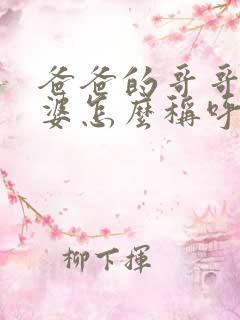 爸爸的哥哥
婆怎麼稱呼
柳下揮